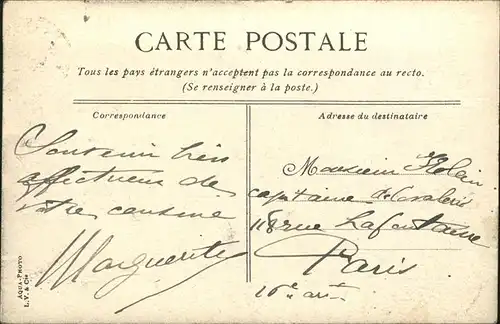 CARTE POSTALE
Tous les pays étrangers n'acceptent pas la correspondance au recto.
(Se renseigner à la poste.)
Correspondance
Souvenir très
affectueux de
votre cousine
Marguerite
AQUA-PHOTO
L.V. & Cie
Adresse du destinataire
Monsieur
capitaine de Cavalerie
rue Lafontaine
Paris
16e arrt